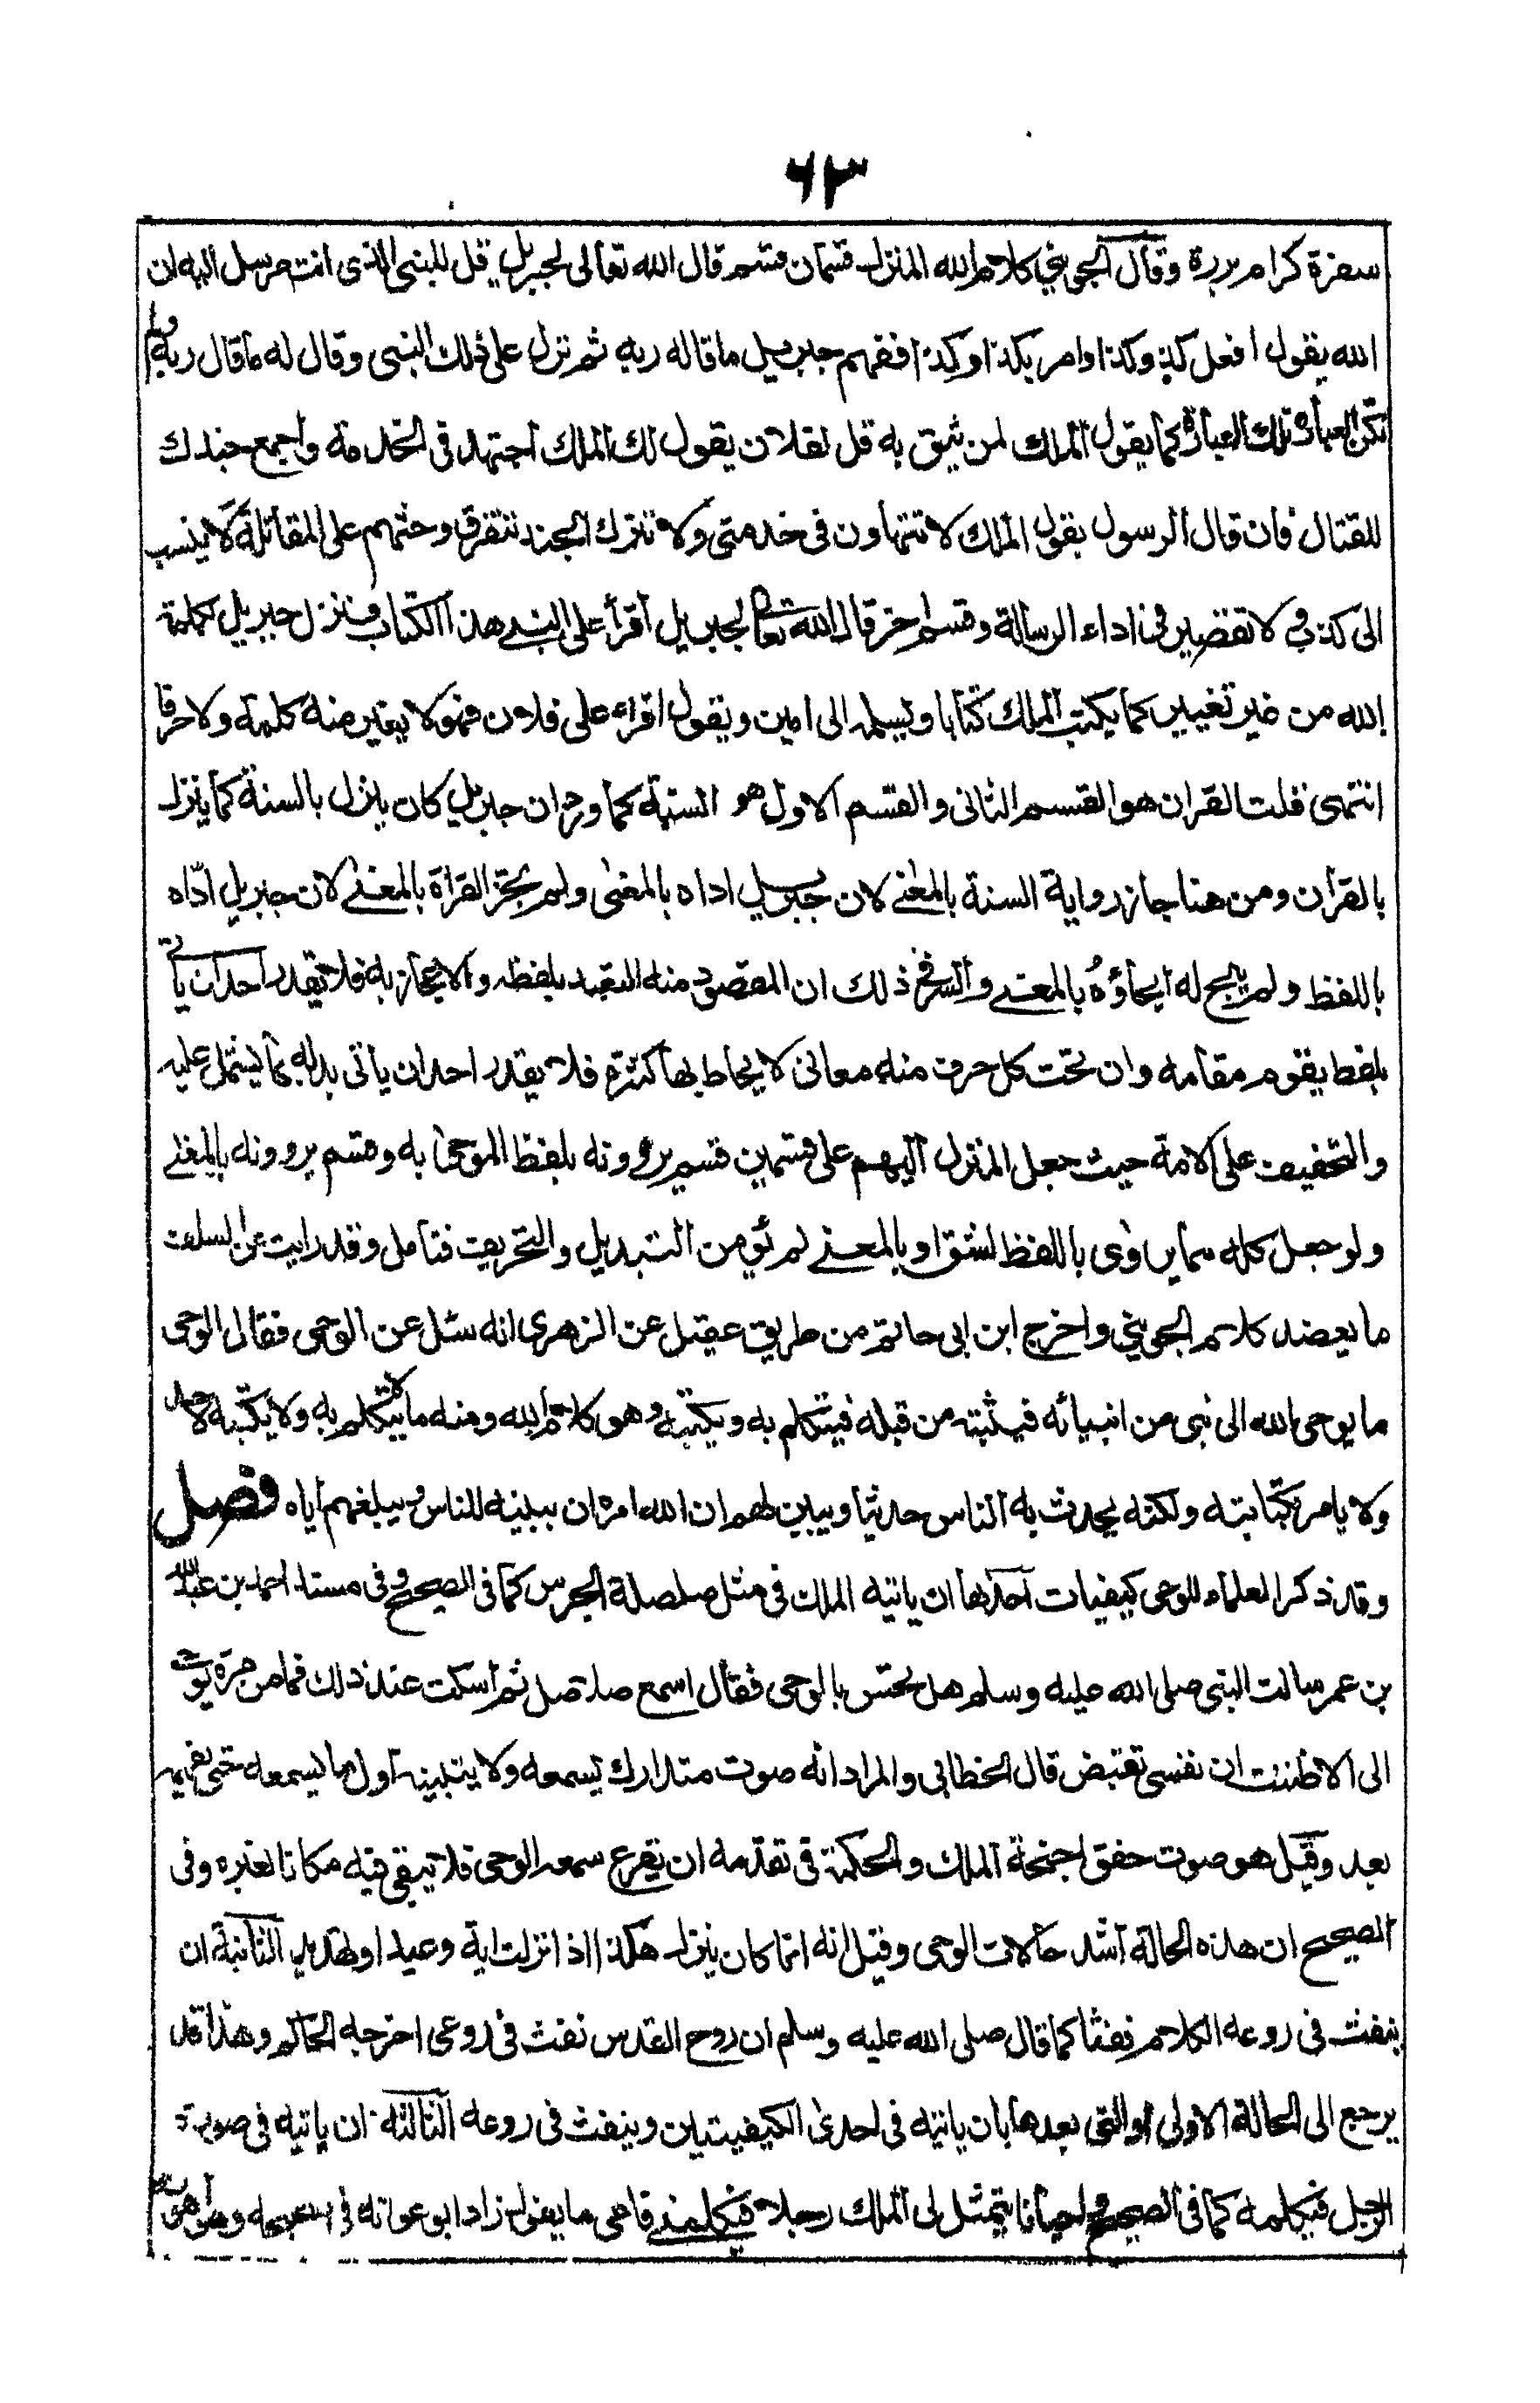 ٦٣
سفرة كرام بررة وقال الجويني كلام الله المنزل قسمان قسم قال الله تعالى لجبريل قل للنبي الذي انت مرسل اليه ان
الله يقول افعل كذا وكذا وامر بكذا وكذا ففهم جبريل ما قاله ربه ثم نزل على ذلك النبي وقال له ما قال ربه ولم
تكن العبارة تلك العبارة كما يقول الملك لمن يثق به قل لفلان يقول لك الملك اجتهد في الخدمة واجمع جندك
للقتال فان قال الرسول يقول الملك لا تتهاون في خدمتي ولا تترك الجند تتفرق وحثهم على المقاتلة لا ينسب
الى كذب ولا تقصير في اداء الرسالة وقسم اخر قال الله تعالى لجبريل أقرأ على النبي هذا الكتاب فنزل جبريل بكلمة
الله من غير تغيير كما يكتب الملك كتابا ويسلمه الى امين ويقول اقراه على فلان فهو لا يغير منه كلمة ولا حرفا
انتهى قلت القران هو القسم الثاني والقسم الاول هو السنة كما ورد ان جبريل كان ينزل بالسنة كما ينزل
بالقرأن ومن هنا جاز رواية السنة بالمعنى لان جبريل اداه بالمعنى ولم تجز القرأة بالمعنى لان جبريل ادّاه
باللفظ ولم يبح له ايحاؤه بالمعنى والسر في ذلك ان المقصود منه التعبد بلفظه والاعجاز به فلا يقدر احد ان يأتي
بلفظ يقوم مقامه وان تحت كل حرف منه معاني لا يحاط بها كثرة فلا يقدر احد ان يأتي بدله بما يشتمل عليه
والتخفيف على الامة حيث جعل المنزل اليهم على قسمين قسم يروونه بلفظ الموحى به وقسم يروونه بالمعنى
ولو جعل كله مما يروى باللفظ لشق او بالمعنى لم يؤمن التبديل والتحريف فتامل وقد رايت عن السلف
ما يعضد كلام الجويني واخرج ابن ابي حاتم من طريق عقيل عن الزهري انه سئل عن الوحي فقال الوحي
ما يوحي الله الى نبي من انبيائه فيثبته من قبله فيتكلم به ويكتبه وهو كلام الله ومنه ما لا يتكلم به ولا يكتبه لاحد
ولا يامر بكتابته ولكنه يحدث به الناس حديثا ويبين لهم ان الله امره ان يبينه للناس ويبلغهم اياه فصل
وقد ذكر العلماء للوحي كيفيات احدها ان ياتيه الملك في مثل صلصلة الجرس كما في الصحيح وفي مسند احمد بن عبد الله
بن عمر سالت النبي صلى الله عليه وسلم هل تحس بالوحي فقال اسمع صلاصل ثم اسكت عند ذلك فما من مرة يوحى
الى الا ظننت ان نفسي تقبض قال الخطابي والمراد انه صوت متدارك يسمعه ولا يتبينه اول ما يسمعه حتى يفهمه
بعد وقيل هو صوت خفق اجنحة الملك والحكمة في تقدمه ان يقرع سمعه الوحي فلا يبقي فيه مكانا لغيره وفي
الصحيح ان هذه الحالة اشد حالات الوحي وقيل انه انما كان ينزل هكذا اذا نزلت اية وعيد او تهديد الثانية ان
ينفث في روعه الكلام نفثا كما قال صلى الله عليه وسلم ان روح القدس نفث في روعي اخرجه الحاكم وهذا قد
يرجع الى الحالة الاولى او التي بعدها بان ياتيه في احدى الكيفيتين وينفث في روعه الثالثة ان ياتيه في صورة
الرجل فيكلمه كما في الصحيح واحيانا يتمثل لي الملك رجلا فيكلمني فاعي ما يقول زاد ابو عوانة في صحيحه وهو اهونه